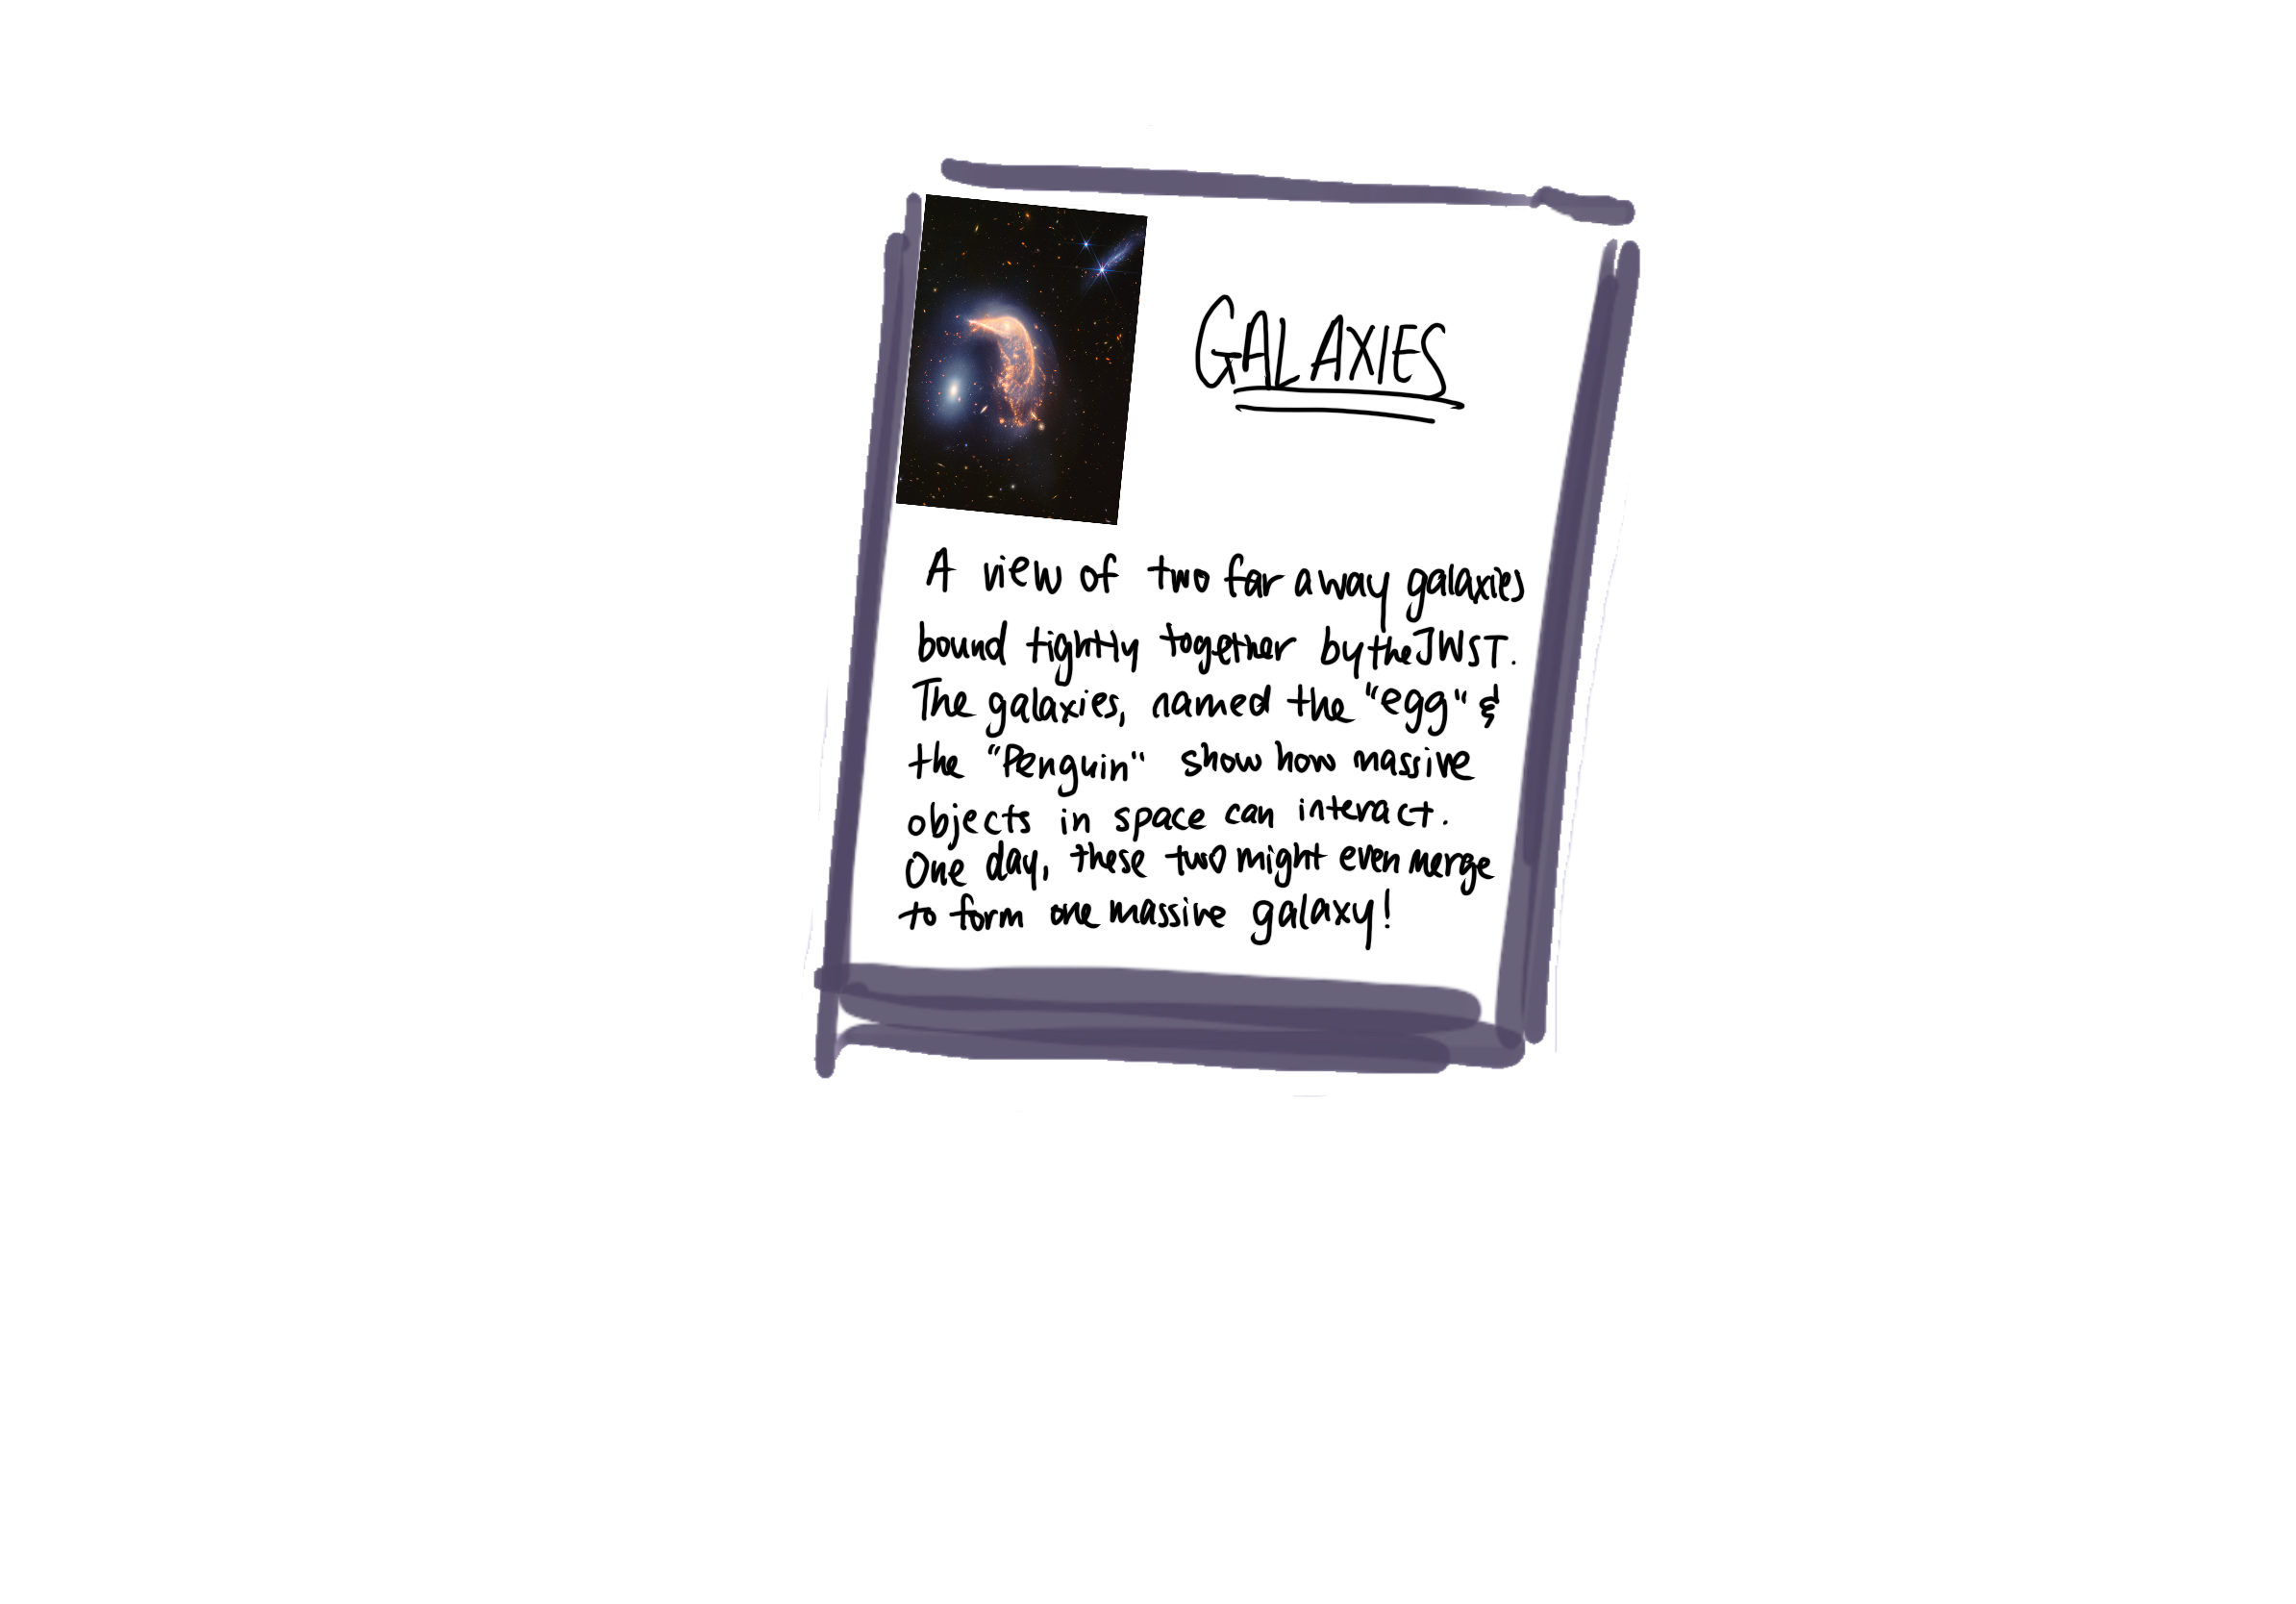 GALAXIES
A view of two far away galaxies
bound tightly together by the JWST.
The galaxies, named the "egg" &
the "Penguin" show how massive
objects in space can interact.
One day, these two might even merge
to form one massive galaxy!